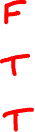 F
T
T